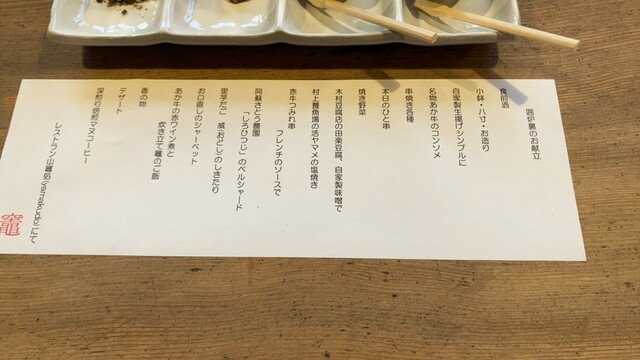 囲炉裏のお献立
食前酒
小鉢・八寸・お造り
自家製生揚げシンプルに
名物あか牛のコンソメ
串焼き各種
本日のひと串
焼き野菜
木村豆腐店の田楽豆腐、自家製味噌で
村上養魚場の活ヤマメの塩焼き
赤牛つみれ串
フレンチのソースで
阿蘇さとう農園
「しろひつじ」のベルシャード
里芋だご 威(おどし)のしきたり
お口直しのシャーベット
あか牛の赤ワイン煮と
炊き立て竈のご飯
香の物
デザート
深煎り焙煎マヌコーヒー
レストラン山竈処(yamakudo)にて
竈